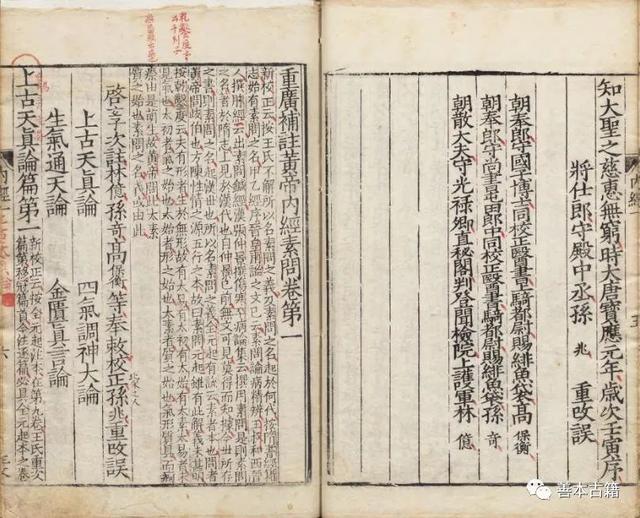 知大聖之慈惠無窮時大唐寶應元年歲次壬寅序
將仕郎守殿中丞孫 兆 重改誤
朝奉郎守國子博士同校正醫書上騎都尉賜緋魚袋高 保衡
朝奉郎守尚書屯田郎中同校正醫書騎都尉賜緋魚袋孫 奇
朝散大夫守光祿卿直秘閣判登聞檢院上護軍林 億
重廣補註黃帝內經素問卷第一
新校正云按王氏不解所以名素問之義及素問之名起於何代按隋書經籍
志始有素問之名甲乙經序晉皇甫謐之文已云素問論病精辨王叔和西晉
人撰脉經云出素問鍼經漢張仲景撰傷寒卒病論集云撰用素問是則素問
之名著於隋志上見於漢代也自仲景已前無文可見莫得而知據今世所存
之書則素問之名起漢世也所以名素問之義全元起有說云素者本也問者
黃帝問歧伯也方陳性情之源五行之本故曰素問元起雖有此解義未甚明
按乾鑿度云夫有形者生於無形故有太易有太初有太始有太素太易者未
見氣也太初者氣之始也太始者形之始也太素者質之始也氣形質具而
痾瘵由是萌生故黃帝問此太素
質之始也素問之名義或由此
啓玄子次註林億孫奇高保衡等奉敕校正孫兆重改誤
上古天真論
四氣調神大論
生氣通天論
金匱真言論
上古天真論篇第一
新校正云按全元起注本在第九卷王氏重次
篇第移冠篇首今注逐篇必具全元起本之卷
內經
六
善本古籍